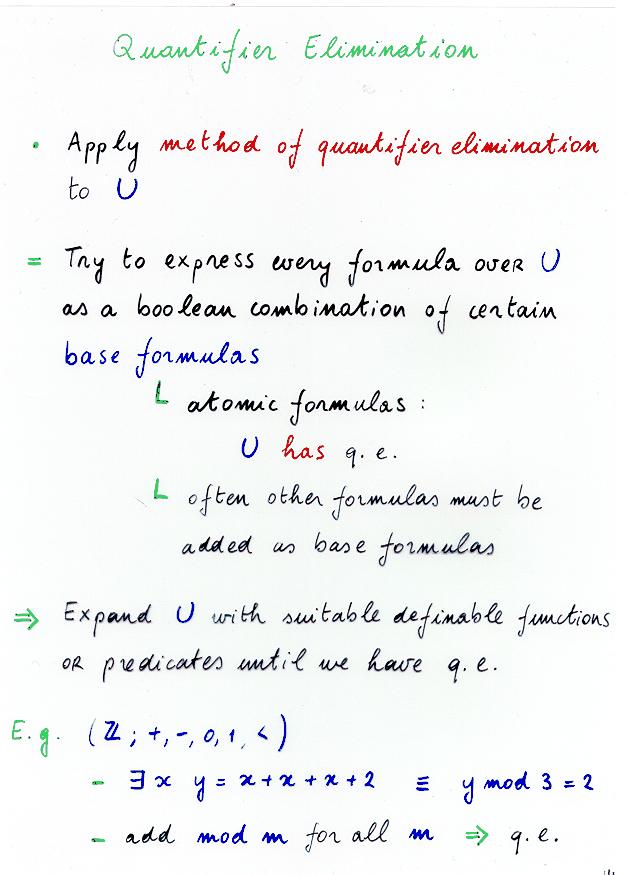 Quantifier Elimination
· Apply method of quantifier elimination
to U
= Try to express every formula over U
as a boolean combination of certain
base formulas
└ atomic formulas :
U has q. e.
└ often other formulas must be
added as base formulas
⇒ Expand U with suitable definable functions
OR predicates until we have q. e.
E.g. (ℤ ; +, -, 0, 1, <)
- ∃x y = x + x + x + 2 ≡ y mod 3 = 2
- add mod m for all m ⇒ q. e.